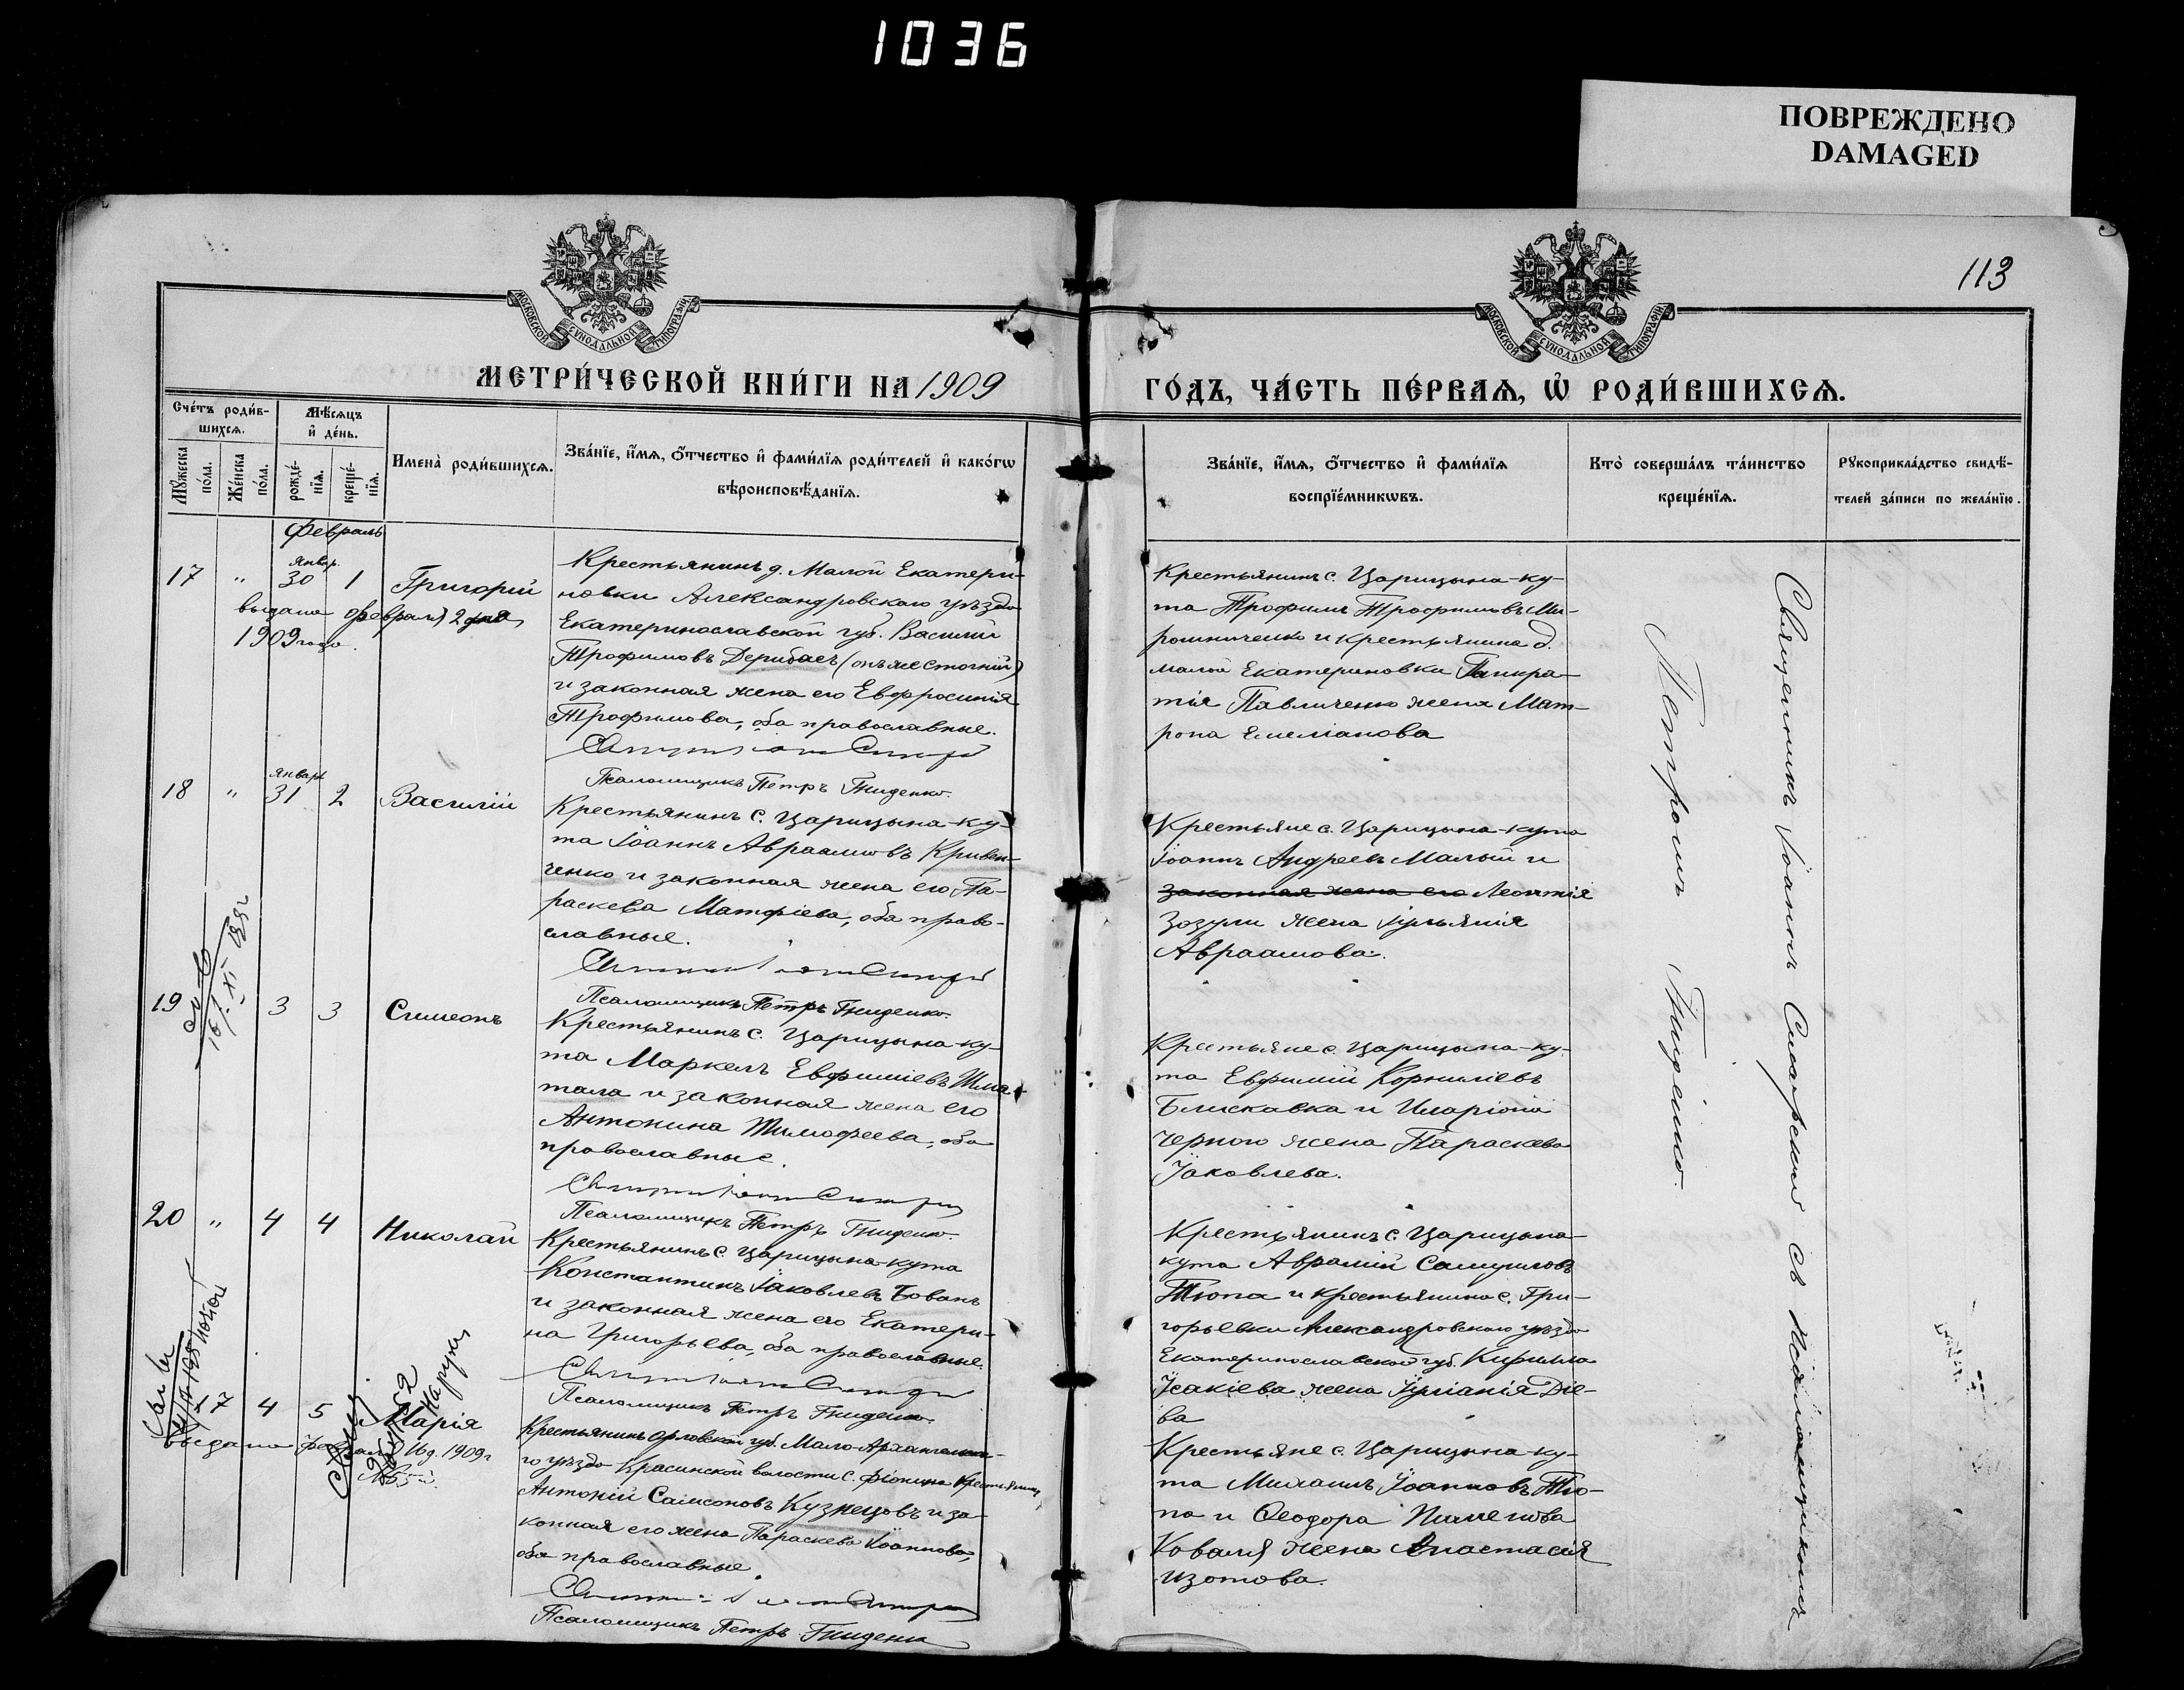 1036
ПОВРЕЖДЕНО
DAMAGED
113
МОСКОВСКОЙ СѴНОДАЛЬНОЙ ТИПОГРАФІИ
МОСКОВСКОЙ СѴНОДАЛЬНОЙ ТИПОГРАФІИ
МЕТРИ́ЧЕСКОЙ КНИ́ГИ НА 1909
ГО́ДЪ, ЧА́СТЬ ПЕ́РВАѦ, Ѡ҆ РОДИ́ВШИХСѦ.
Сче́тъ роди́в-
шихсѧ.
Мꙋ́жеска по́ла.
Же́нска по́ла.
Мѣ́сяцъ
и҆ де́нь.
рожде́-
нїѧ.
креще́-
нїѧ.
Имена̀ роди́вшихсѧ.
Зва́нїе, и҆́мѧ, ѻ҆́тчество и҆ фами́лїѧ роди́телей и҆ како́гѡ
вѣроисповѣ́данїѧ.
Зва́нїе, и҆́мѧ, ѻ҆́тчество и҆ фами́лїѧ
воспрїе́мникѡвъ.
Кто̀ соверша́лъ та́инство
креще́нїѧ.
Рꙋкоприкла́дство свидѣ́-
телей за́писи по жела́нїю.
Февраль
17 " Январ. 30 1 Григорій
выдана Февраля 2 дня
1909 года.
Крестьянинъ д. Малой Екатери-
новки Александровскаго уѣзда
Екатеринославской губ. Василій
Трофимовъ Дерибасъ
и законная жена его Евфросинія
Трофимова, оба православные.
Псаломщикъ Петръ Гниденко.
Крестьянинъ с. Царицына-ку-
та Трофимъ Трофимовъ Ми-
рошниченко и крестьянина д.
малой Екатериновки Панкра-
тія Павличенко жена Мат-
рона Емеліанова
18 " Январ. 31 2 Василій
Крестьянинъ с. Царицына-ку-
та Іоаннъ Авраамовъ Кривен-
ченко и законная жена его Па-
раскева Матфіева, оба право-
славные.
Псаломщикъ Петръ Гниденко.
Крестьяне с. Царицына-кута
Іоаннъ Андреевъ Малый и
законная жена его Леонтія
Зозули жена Іуліанія
Авраамова.
19 3 3 Симеонъ
Крестьянинъ с. Царицына-ку-
та Маркелъ Евфиміевъ Шма-
тала и законная жена его
Антонина Тимофеева, оба
православные.
Псаломщикъ Петръ Гниденко.
Крестьяне с. Царицына-ку-
та Евфимій Корниліевъ
Блискавка и Иларіона
Черного жена Параскева
Іаковлева.
20 " 4 4 Николай
Крестьянинъ с. Царицына-кута
Константинъ Іаковлевъ Бованъ
и законная жена его Екатери-
на Григорьева, оба православные.
Псаломщикъ Петръ Гниденко.
Крестьянинъ с. Царицына-
кута Аврамій Самуиловъ
Тюпа и крестьянина с. Гри-
горьевки Александровскаго уѣзда
Екатеринославской губ. Кирилла
Исакіева жена Іуліанія Діе-
ва
17 4 5 Марія
выдана Февраля 16 д. 1909 г
Крестьянинъ Орловской губ. Мало-Архангельска-
го уѣзда Красинской волости с.
Антоній Самсоновъ Кузнецовъ и за-
конная его жена Параскева Іоаннова,
оба православные.
Псаломщикъ Петръ Гниденко
Крестьяне с. Царицына-ку-
та Михаилъ Іоанновъ Тю-
па и Ѳеодора Пименова
Коваля жена Анастасія
Изотова.
Священникъ Іоаннъ съ псаломщикомъ
Петромъ Гниденко.